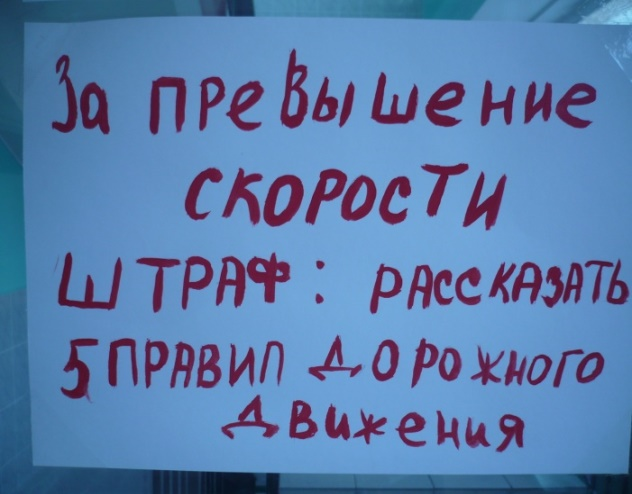 За превышение
скорости
ШТРАФ: РАССКАЗАТЬ
5 ПРАВИЛ ДОРОЖНОГО
движения